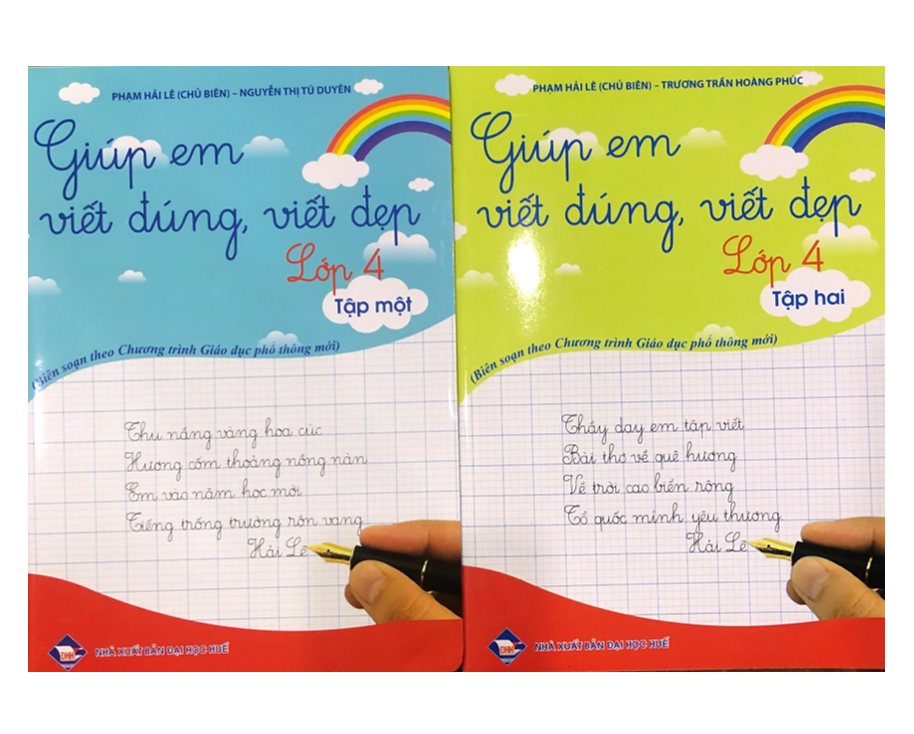 PHẠM HẢI LÊ (CHỦ BIÊN) – NGUYỄN THỊ TÚ DUYÊN
Giúp em
viết đúng, viết đẹp
Lớp 4
Tập một
(Biên soạn theo Chương trình Giáo dục phổ thông mới)
Thu nắng vàng hoa cúc
Hương cốm thoảng nồng nàn
Em vào năm học mới
Tiếng trống trường rộn vang
Hải Lê
DHH
NHÀ XUẤT BẢN ĐẠI HỌC HUẾ
PHẠM HẢI LÊ (CHỦ BIÊN) – TRƯƠNG TRẦN HOÀNG PHÚC
Giúp em
viết đúng, viết đẹp
Lớp 4
Tập hai
(Biên soạn theo Chương trình Giáo dục phổ thông mới)
Thầy dạy em tập viết
Bài thơ về quê hương
Về trời cao biển rộng
Tổ quốc mình yêu thương
Hải Lê
DHH
NHÀ XUẤT BẢN ĐẠI HỌC HUẾ